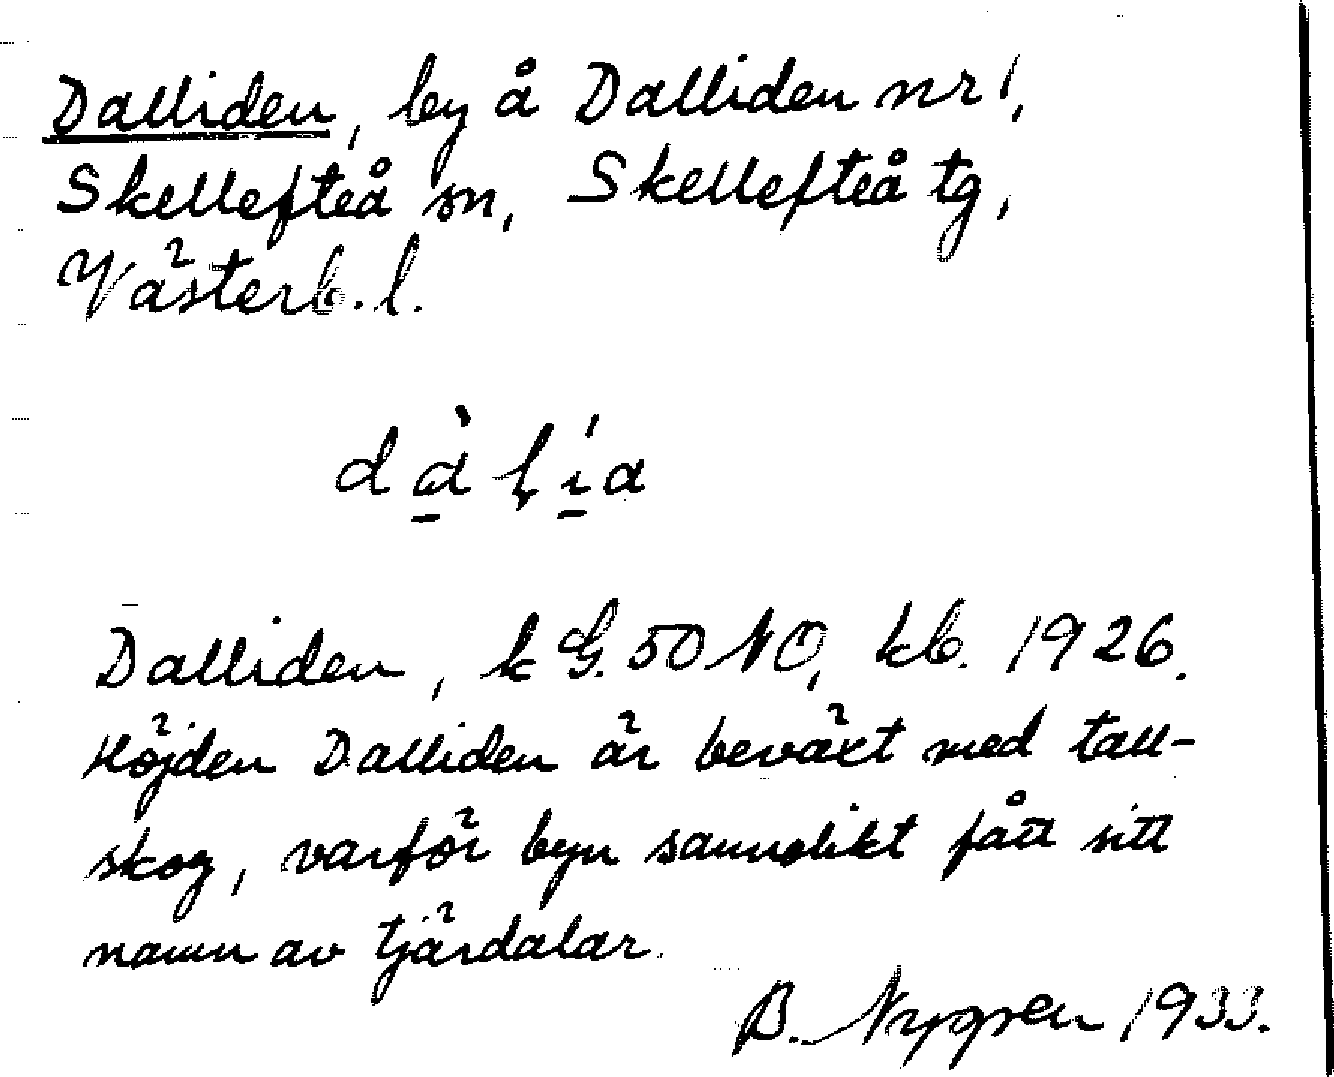 Dalliden, by å Dalliden nr 1,
Skellefteå sn, Skellefteå tg,
Västerb. l.
dàl̩ía
Dalliden, k G. 50 NO, kb. 1926.
Höjden Dalliden är beväxt med tall-
skog, varför byn sannolikt fått sitt
namn av tjärdalar.
B. Nygren 1933.